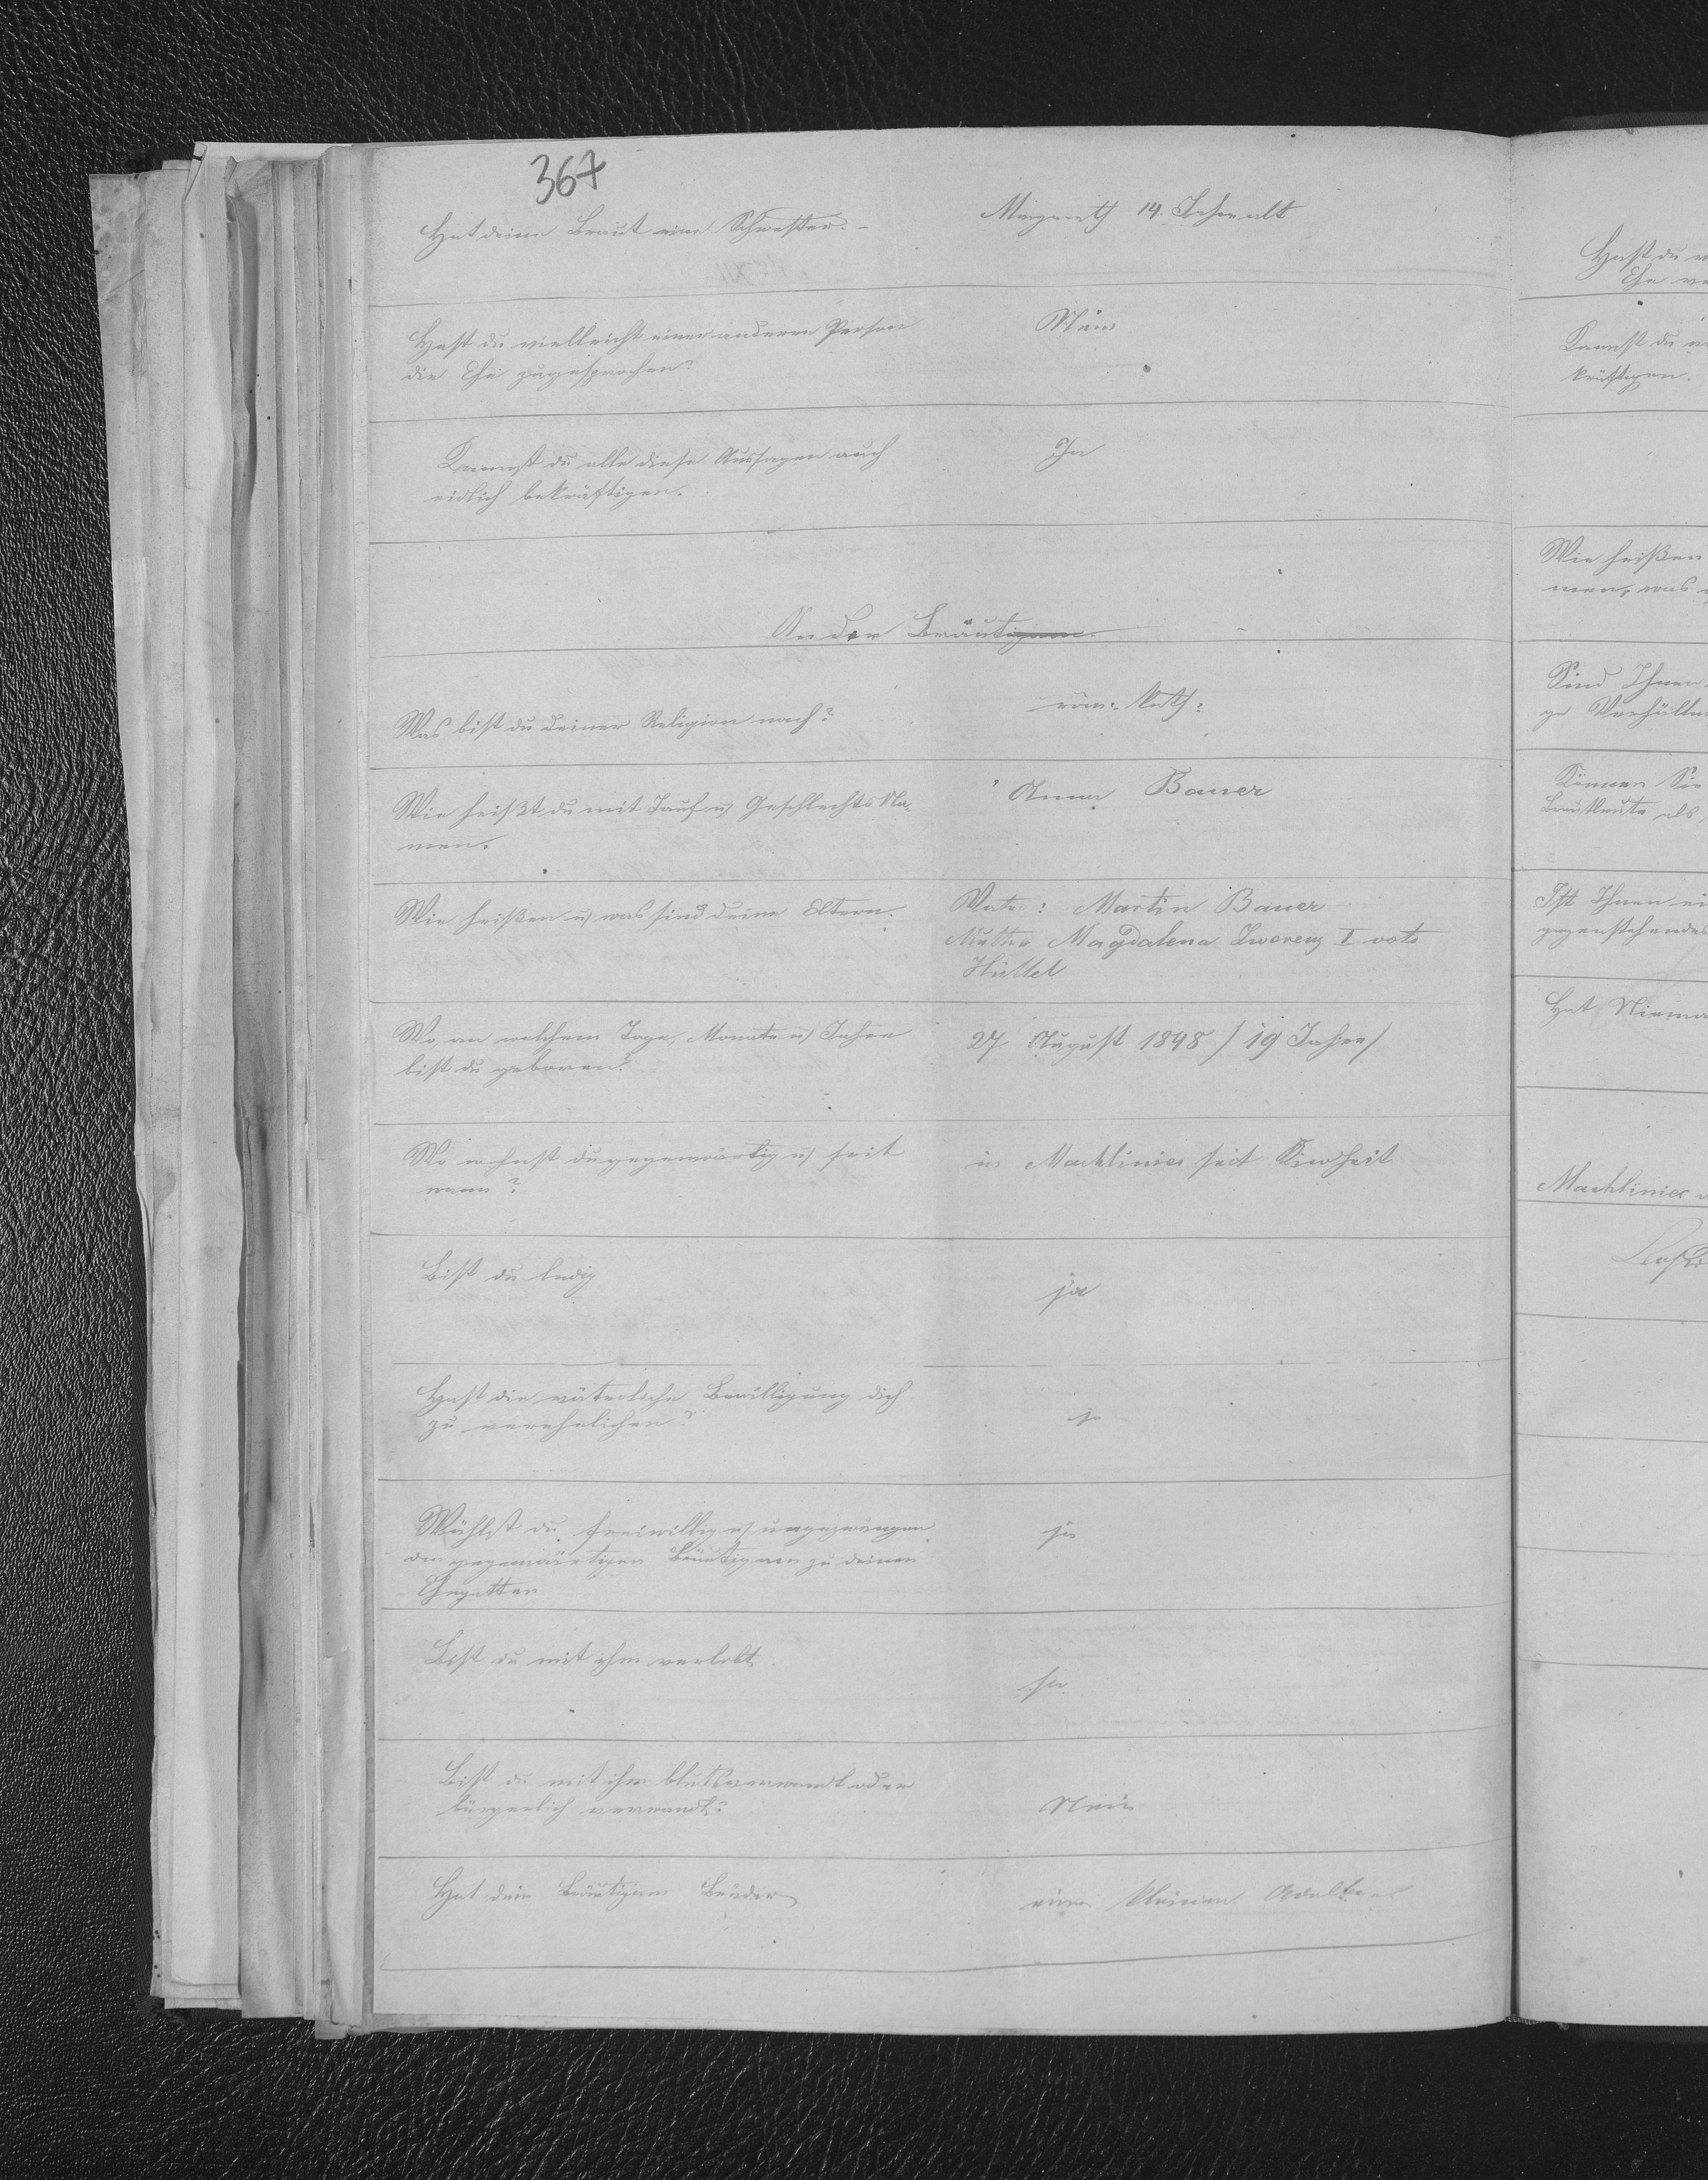 367
Hat deine Braut eine Schwester. -
Margareth 14. Jahre alt
Hast du vielleicht einer anderen Person
die Ehe zugesprochen?
Nein
Kannst du alle diese Aussagen auch
eidlich bekräftigen.
Ja
An der Bräutigam -
Was bist du deiner Religion nach?
röm: kath:
Wie heißt du mit Tauf u) Geschlechts Na-
men.
Anna Bauer
Wie heißen u) was sind deine Eltern.
Vater: Martin Bauer
Mutter Magdalena Zworenz I voto
Hüttel
Wo, an welchem Tage, Monate u) Jahre
bist du geboren?
27 August 1848 / 19 Jahre /
Wo wohnst du gegenwärtig u) seit
wann?
in Machliniec seit Kindheit
Bist du ledig
ja
Hast die väterliche Bewilligung dich
zu verehelichen?
ja
Wählst du freiwillig u) ungezwungen
den gegenwärtigen Bräutigam zu deinen
Ehegatten
ja
Bist du mit ihm verlobt.
ja
Bist du mit ihm blutsverwandt oder
bürgerlich verwandt?
Nein
Hat dein Bräutigam Brüder
einen kleinen
Hast du
Ehe
Kannst du
kräftigen.
Wie heißen
men, was
Sind Ihnen
ge
Können Sie
Brautleute als
Ist Ihnen ei
gegenstehendes
Hat Niema
Machliniec